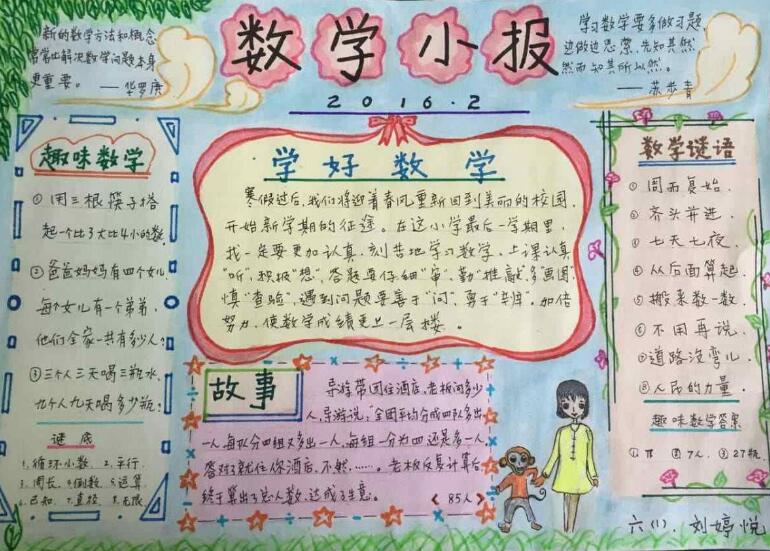 数学小报
2016.2
新的数学方法和概念
常常比解决数学问题本身
更重要。
——华罗庚
学习数学要多做习题
边做边思索,先知其然
然而知其所以然。
——苏步青
趣味数学
①用三根筷子搭
起一个比3大比4小的数
②爸爸妈妈有四个女儿
每个女儿有一个弟弟,
他们全家一共有多少人?
③三个人三天喝三瓶水,
九个人九天喝多少瓶?
谜底
1.循环小数 2.平行.
3.周长 4.倒数 5.运算
6.已知 7.直径 8.无限
学好数学
寒假过后,我们将迎着春风重新回到美丽的校园,
开始新学期的征途。在这小学最后一学期里,
我一定要更加认真,刻苦地学习数学,上课认真
"听",积极"想",答题要仔细"审",勤"推敲",多"画图",
慎"查验",遇到问题要善于"问",勇于"辩",加倍
努力,使数学成绩更上一层楼。
故事
导游带团住酒店,老板问多少
人,导游说:"全团平均分成四队多出
一人,每队分四组又多出一人,每组一分为四还是多一人,
答对了就住你酒店,不然,……。老板反复计算后
终于算出了总人数,达成了生意。
《85人》
数学谜语
①周而复始.
②齐头并进.
③七天七夜.
④从后面算起.
⑤搬来数一数.
⑥不用再说.
⑦道路没弯儿.
⑧人民的力量.
趣味数学答案
①π ②7人 ③27瓶.
六(1).刘婷悦